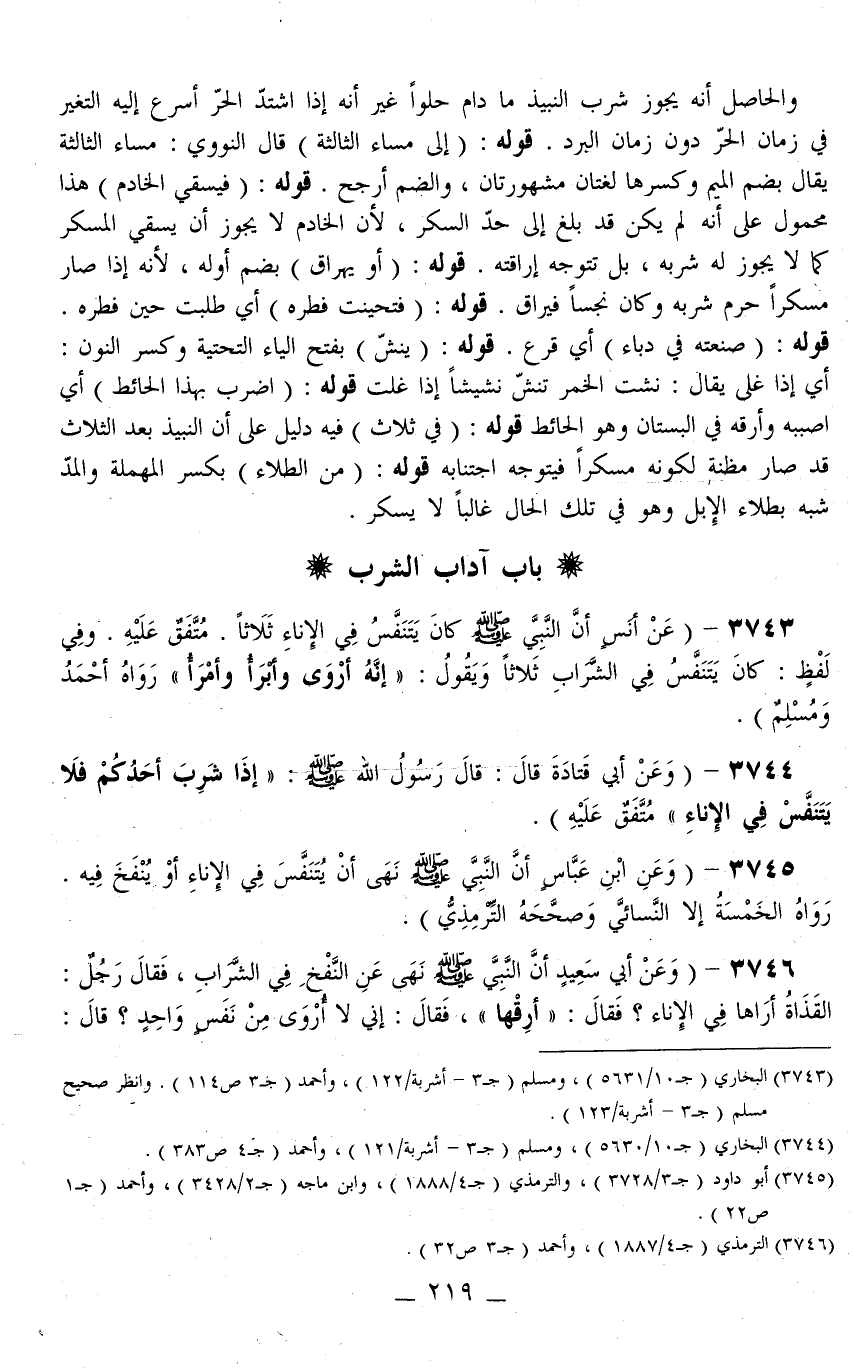 والحاصل أنه يجوز شرب النبيذ ما دام حلواً غير أنه إذا اشتدّ الحرّ أسرع إليه التغير
في زمان الحرّ دون زمان البرد . قوله : ( إلى مساء الثالثة ) قال النووي : مساء الثالثة
يقال بضم الميم وكسرها لغتان مشهورتان ، والضم أرجح . قوله : ( فيسقي الخادم ) هذا
محمول على أنه لم يكن قد بلغ إلى حدّ السكر ، لأن الخادم لا يجوز أن يسقي المسكر
كما لا يجوز له شربه ، بل تتوجه إراقته . قوله : ( أو يهراق ) بضم أوله ، لأنه إذا صار
مسكراً حرم شربه وكان نجساً فيراق . قوله : ( فتحينت فطره ) أي طلبت حين فطره .
قوله : ( صنعته في دباء ) أي قرع . قوله : ( ينشّ ) بفتح الياء التحتية وكسر النون :
أي إذا غلى يقال : نشت الخمر تنشّ نشيشاً إذا غلت قوله : ( اضرب بهذا الحائط ) أي
اصببه وأرقه في البستان وهو الحائط قوله : ( في ثلاث ) فيه دليل على أن النبيذ بعد الثلاث
قد صار مظنة لكونه مسكراً فيتوجه اجتنابه قوله : ( من الطلاء ) بكسر المهملة والمدّ
شبه بطلاء الإبل وهو في تلك الحال غالباً لا يسكر .
باب آداب الشرب
٣٧٤٣ – ( عَنْ أنَسٍ أنَّ النَّبِيَّ ﷺ كانَ يَتَنَفَّسُ فِي الإِناءِ ثَلَاثاً . مُتَّفَقٌ عَلَيْهِ . وفِي
لَفْظٍ : كانَ يَتَنَفَّسُ فِي الشَّرَابِ ثَلاثاً وَيَقُولُ : « إنَّهُ أرْوَى وأبْرَأُ وأمْرَأُ » رَوَاهُ أحْمَدُ
وَمُسْلِمٌ ) .
٣٧٤٤ – ( وَعَنْ أبي قَتَادَةَ قالَ : قالَ رَسُولُ الله ﷺ : « إذَا شَرِبَ أحَدُكُمْ فلَا
يَتَنَفَّسْ فِي الإِناءِ » مُتَّفَقٌ عَلَيْهِ ) .
٣٧٤٥ – ( وَعَنِ ابْنِ عَبَّاسٍ أنَّ النَّبِيَّ ﷺ نَهَى أنْ يُتَنَفَّسَ فِي الإِناءِ أوْ يُنْفَخَ فِيه .
رَوَاهُ الخَمْسَةُ إلا النَّسائيَّ وَصحَّحَهُ التِّرْمِذِيُّ ) .
٣٧٤٦ – ( وَعَنْ أبي سَعِيدٍ أنَّ النَّبِيَّ ﷺ نَهَى عَنِ النَّفْخِ فِي الشَّرَابِ ، فَقالَ رَجُلٌ :
القَذَاةُ أرَاها فِي الإِناء ؟ فَقالَ : « أرِقْها » ، فَقالَ : إني لا أُرْوَى مِنْ نَفَسٍ وَاحِدٍ ؟ قالَ :
(٣٧٤٣) البخاري ( جـ٥٦٣١/١٠ ) ، ومسلم ( جـ٣ – أشربة/١٢٢ ) ، وأحمد ( جـ٣ ص١١٤ ) . وانظر صحيح
مسلم ( جـ٣ – أشربة/١٢٣ ) .
(٣٧٤٤) البخاري ( جـ٥٦٣٠/١٠ ) ، ومسلم ( جـ٣ – أشربة/١٢١ ) ، وأحمد ( جـ٤ ص٣٨٣ ) .
(٣٧٤٥) أبو داود ( جـ٣٧٢٨/٣ ) ، والترمذي ( جـ١٨٨٨/٤ ) ، وابن ماجه ( جـ٣٤٢٨/٢ ) ، وأحمد ( جـ١
ص٢٢ ) .
(٣٧٤٦) الترمذي ( جـ١٨٨٧/٤ ) ، وأحمد ( جـ٣ ص٣٢ ) .
– ٢١٩ –